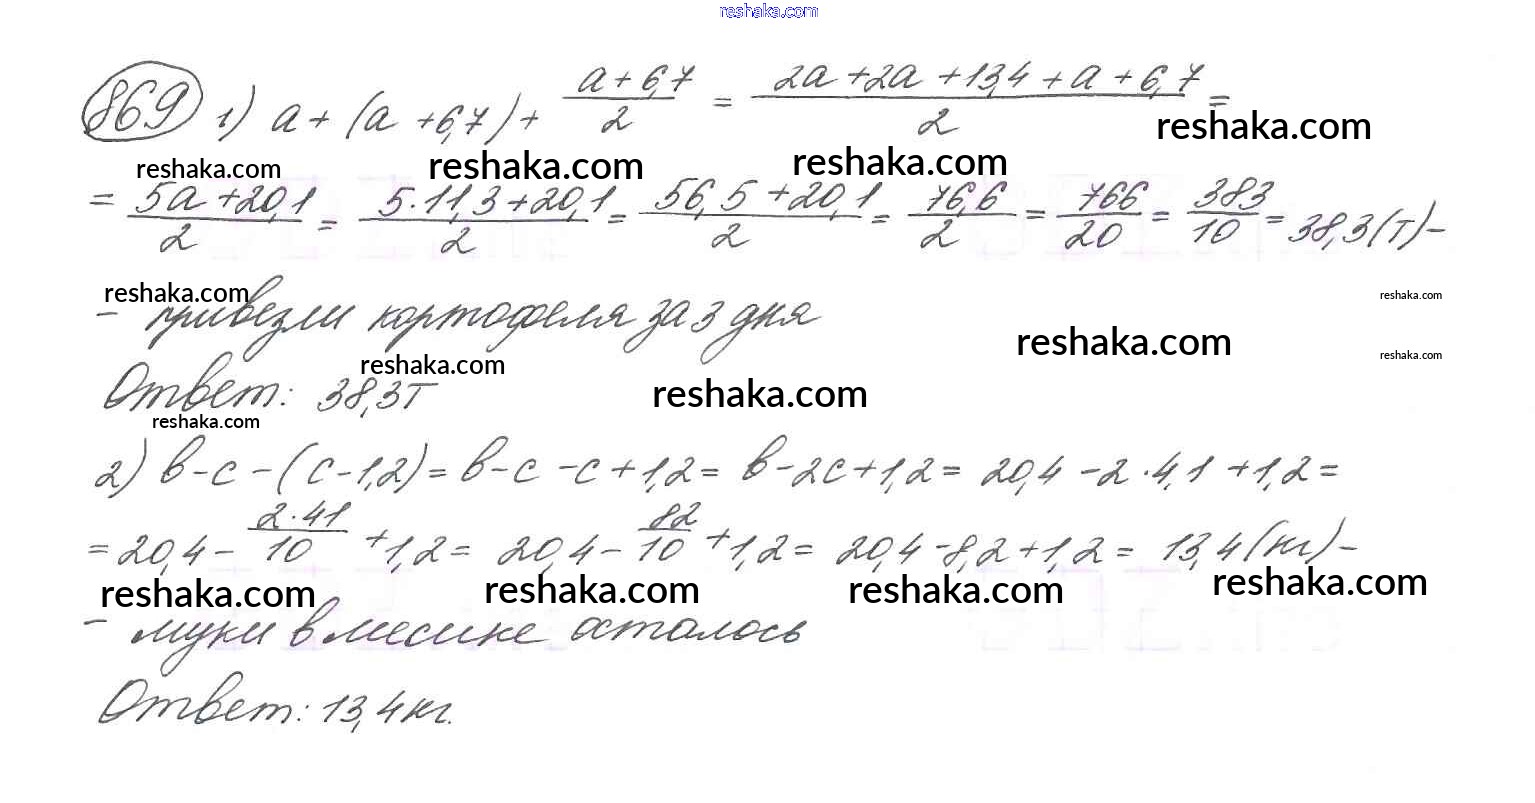 reshaka.com
869 1) a + (a + 6,7) + (a + 6,7)/2 = (2a + 2a + 13,4 + a + 6,7)/2 =
reshaka.com
reshaka.com reshaka.com reshaka.com
= (5a + 20,1)/2 = (5·11,3 + 20,1)/2 = (56,5 + 20,1)/2 = 76,6/2 = 766/20 = 383/10 = 38,3 (т) –
reshaka.com reshaka.com
– привезли картофеля за 3 дня
reshaka.com
reshaka.com reshaka.com
Ответ: 38,3 т
reshaka.com
reshaka.com
2) b – c – (c – 1,2) = b – c – c + 1,2 = b – 2c + 1,2 = 20,4 – 2·4,1 + 1,2 =
= 20,4 – 2·41/10 + 1,2 = 20,4 – 82/10 + 1,2 = 20,4 – 8,2 + 1,2 = 13,4 (кг) –
reshaka.com reshaka.com reshaka.com reshaka.com
– муки в мешке осталось
Ответ: 13,4 кг.